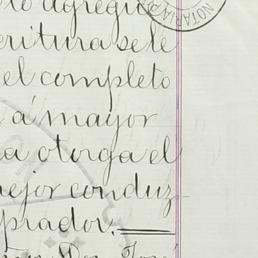 agregue
critura se le
el completo
á mayor
a otorga el
mejor conduz-
prador.
Don José
NOTARIA